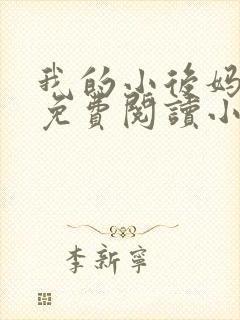 我的小後媽
免費閱讀小
李新寧